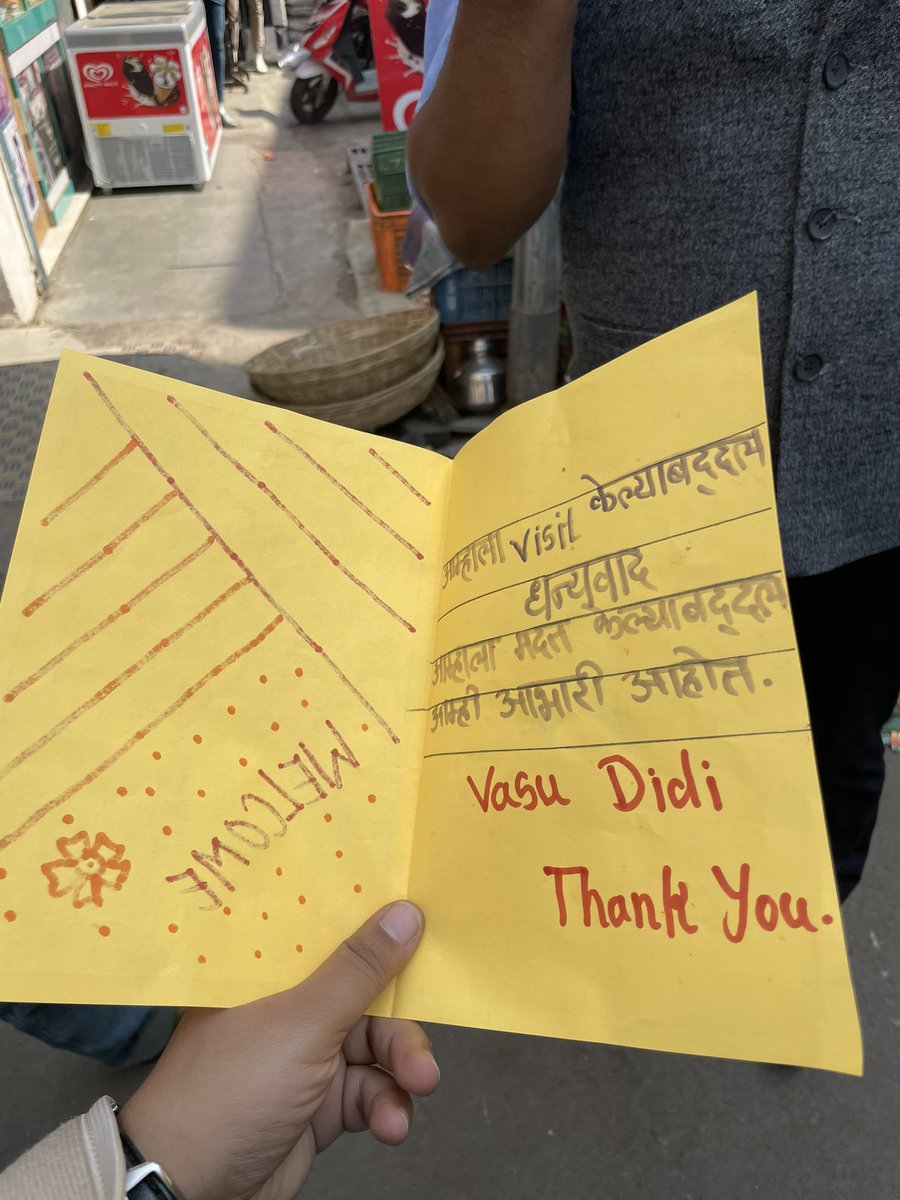 WELCOME
आम्हाला visit केल्याबद्दल
धन्यवाद
आम्हाला मदत केल्याबद्दल
आम्ही आभारी आहोत.
Vasu Didi
Thank You.